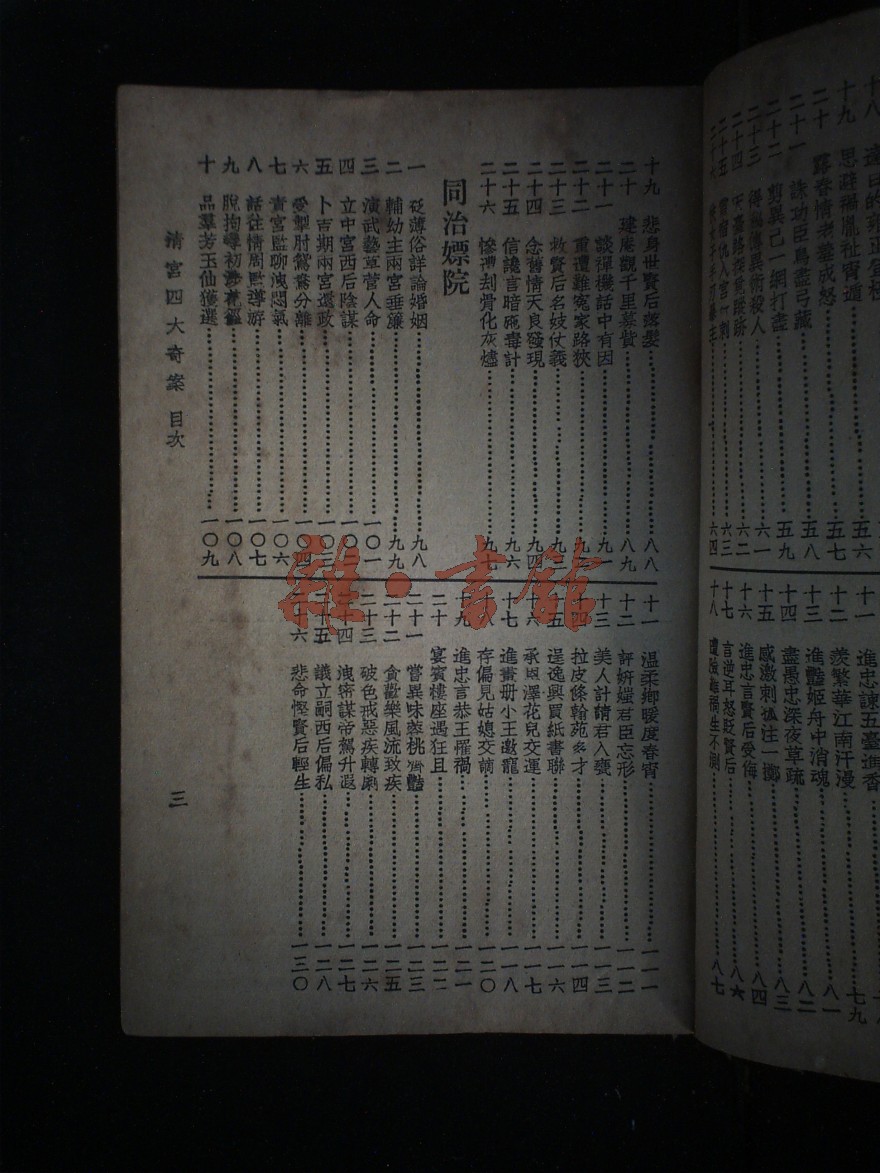 二十
露眷情老羞成怒
二十一
誅功臣鳥盡弓藏
五八
二十二
剪異己一網打盡
五九
二十三
得秘傳異術殺人
六一
二十四
六二
六三
六四
十一
進忠諫五臺進香
十二
羨繁華江南汗漫
七九
十三
進豔姬舟中消魂
八一
十四
盡愚忠深夜草疏
八二
十五
感激刺孤注一擲
八三
十六
進忠言賢后受侮
八四
十七
言逆耳怒貶賢后
八六
十八
八七
十九 悲身世賢后落髮 八八
二十 建庵觀千里募貲 八九
二十一 談禪機話中有因 九一
二十二 重遭難冤家路狹
二十三 救賢后名妓仗義
二十四 念舊情天良發現 九四
二十五 信讒言暗施毒計 九六
二十六 慘遭刦骨化灰燼 九七
同治嫖院
一 砭薄俗詳論婚姻 九八
二 輔幼主兩宮垂簾 九九
三 演武藝草菅人命 一〇一
四 立中宮西后陰謀 一〇二
五 卜吉期兩宮還政 一〇三
六 受掣肘鴛鴦分離 一〇四
七 責宮監聊洩悶氣 一〇六
八 話往情周監導游 一〇七
九 脫拘導初涉花叢 一〇八
十 品羣芳玉仙獲選 一〇九
十一 温柔鄉暖度春宵 一一一
十二 評妍媸君臣忘形 一一二
十三 美人計請君入甕 一一三
十四 拉皮條翰苑多才 一一四
十五 逞逸興買紙書聯 一一六
十六 承恩澤花兒交運 一一七
十七 進畫册小王邀寵 一一八
十八 存偏見姑媳交謫 一二〇
十九 進忠言恭王罹禍 一二一
二十 宴賓樓座遇狂且 一二二
二十一 嘗異味 一二三
二十二 貪歡樂風流致疾 一二五
二十三 破色戒惡疾轉劇 一二六
二十四 洩密謀帝駕升遐 一二七
二十五 議立嗣西后偏私 一二八
二十六 悲命慳賢后輕生 一三〇
清宮四大奇案 目次
三
雜·書館